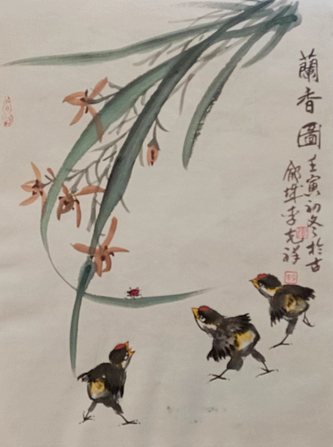 蘭香圖
壬寅初冬於古
邰城李克祥